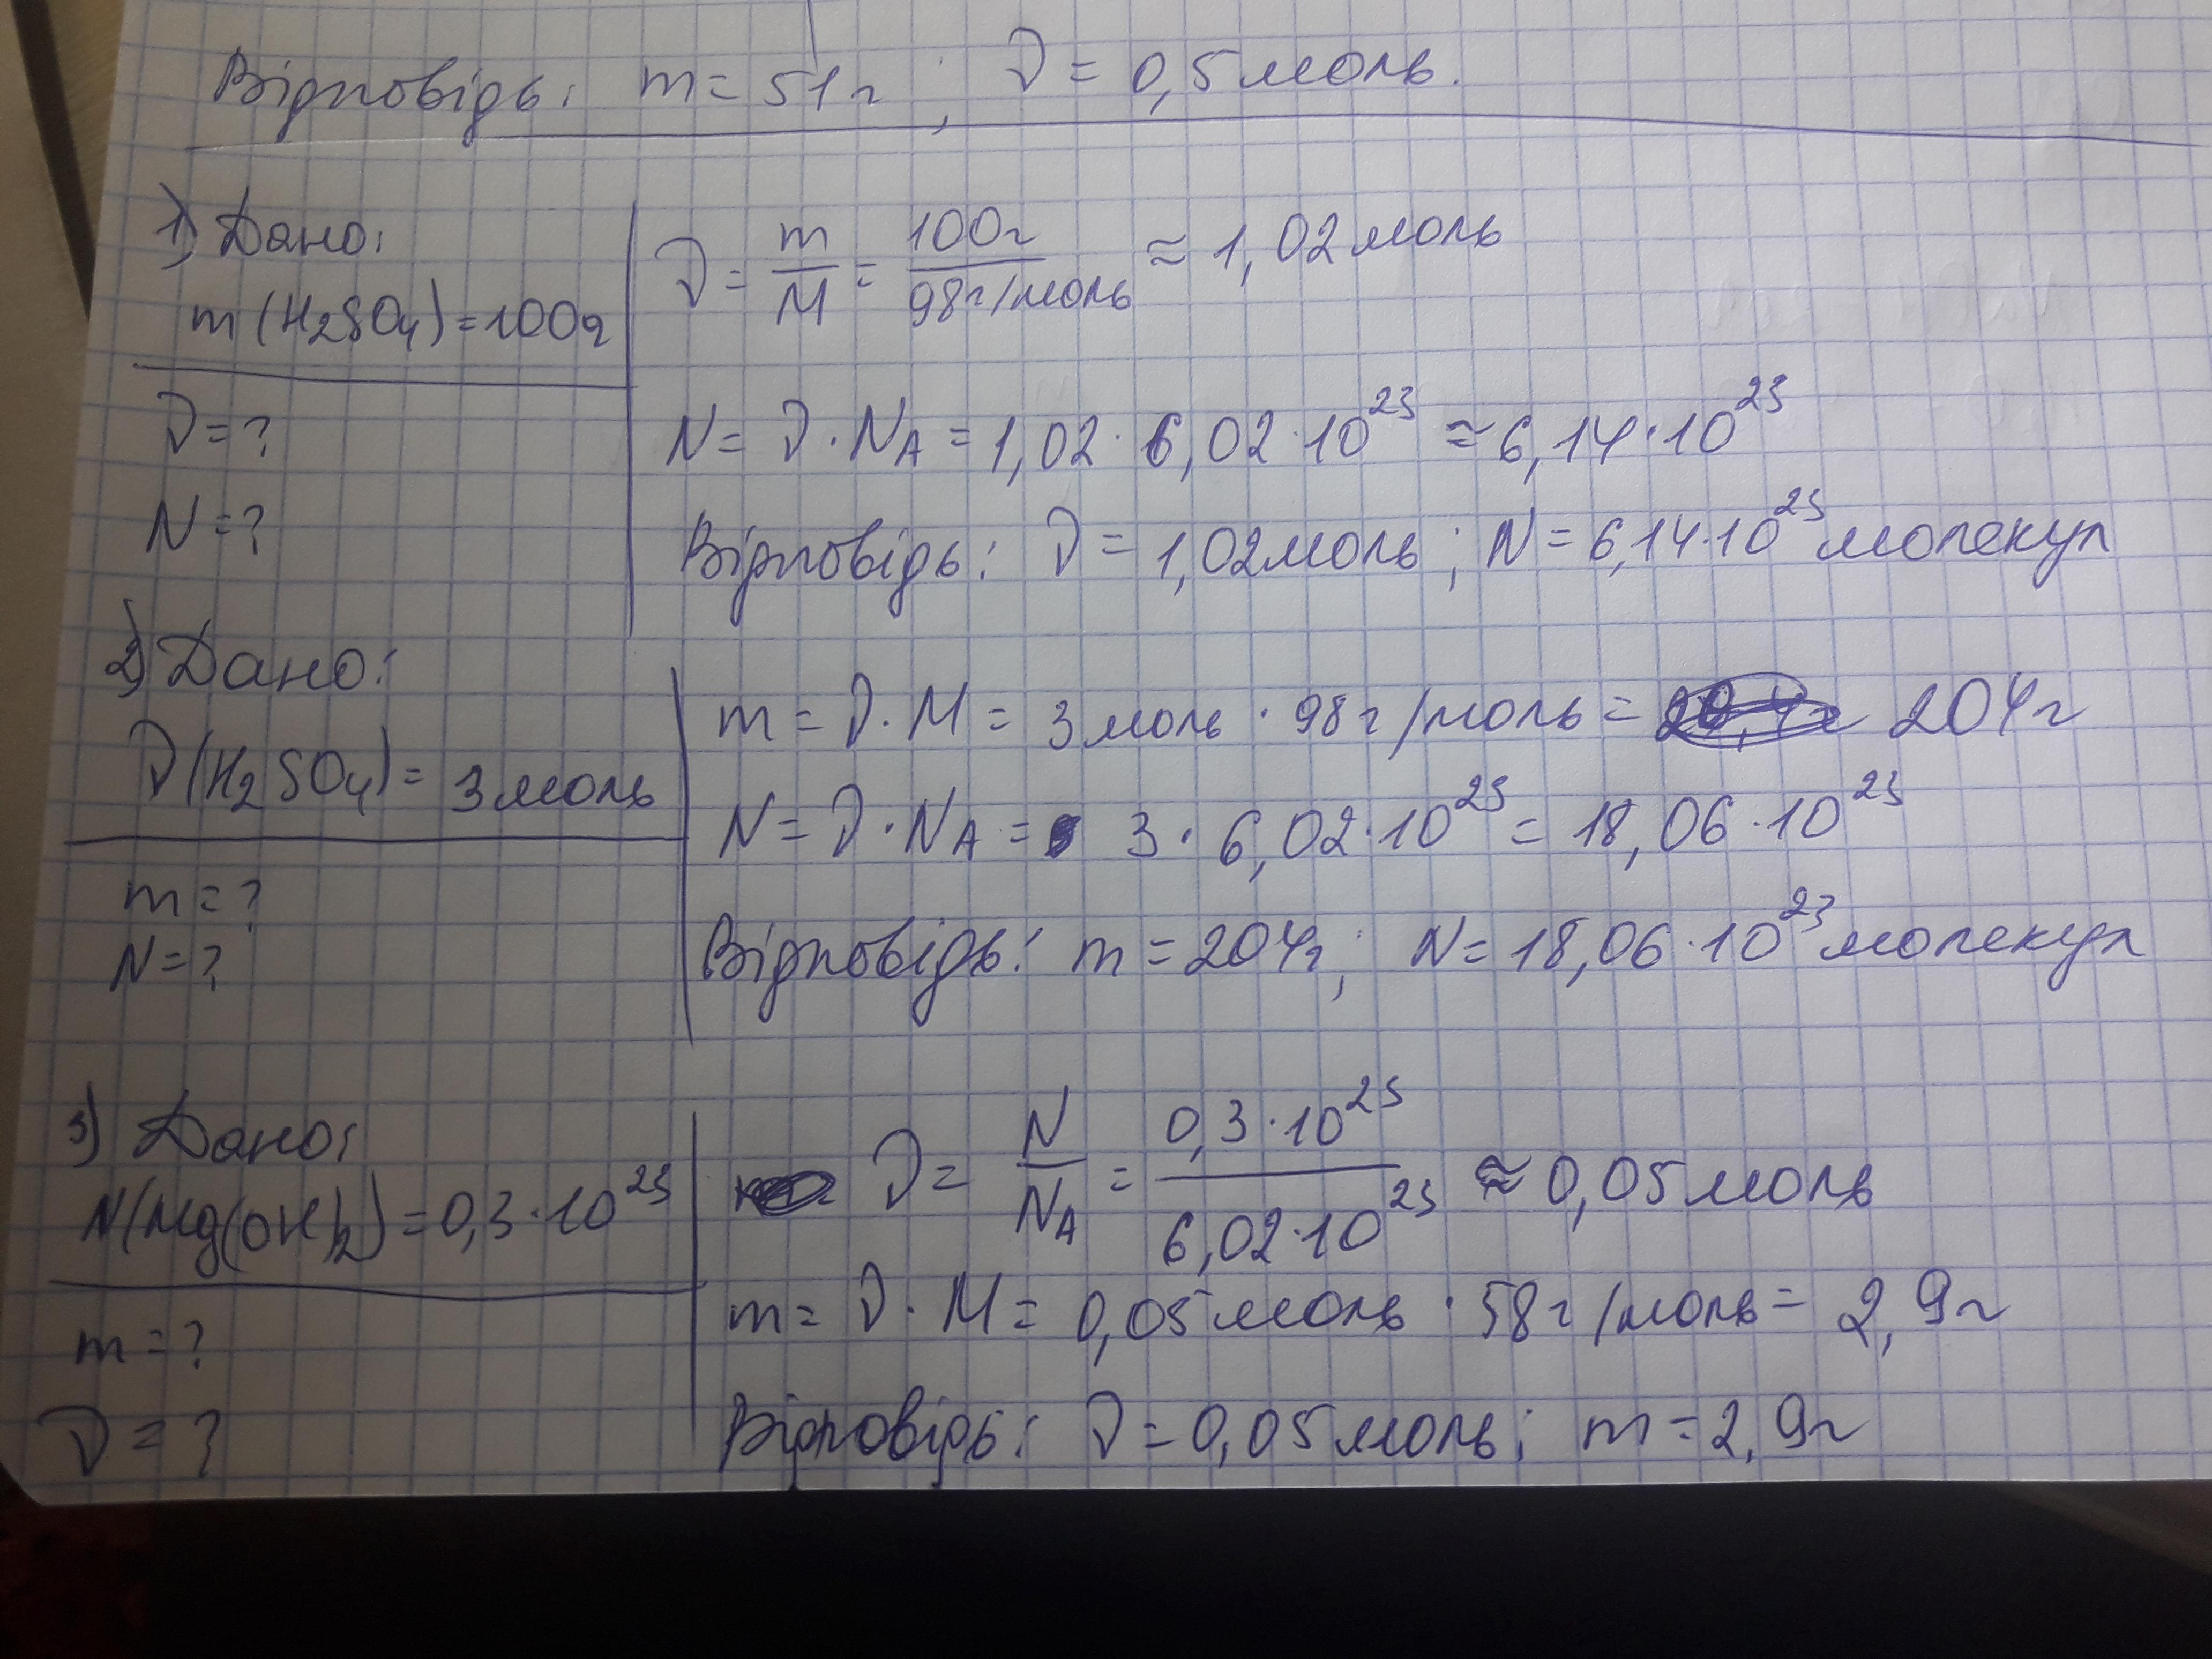 Відповідь: m = 51г; ν = 0,5 моль.
1) Дано:
m (H₂SO₄) = 100г
ν = ?
N = ?
ν = m/M = 100г/98г/моль ≈ 1,02 моль
N = ν · Nᴀ = 1,02 · 6,02 · 10²³ ≈ 6,14 · 10²³
Відповідь: ν = 1,02 моль; N = 6,14 · 10²³ молекул
2) Дано:
ν (H₂SO₄) = 3 моль
m = ?
N = ?
m = ν · M = 3 моль · 98г/моль = 204г
N = ν · Nᴀ = 3 · 6,02 · 10²³ = 18,06 · 10²³
Відповідь: m = 204г; N = 18,06 · 10²³ молекул
3) Дано:
N(Mg(OH)₂) = 0,3 · 10²³
m = ?
ν = ?
ν = N/Nᴀ = 0,3 · 10²³/6,02 · 10²³ ≈ 0,05 моль
m = ν · M = 0,05 моль · 58г/моль = 2,9г
Відповідь: ν = 0,05 моль; m = 2,9г